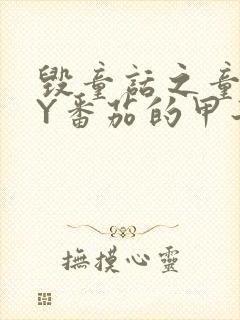 毁童话之童
Y番茄的甲
撫摸心靈